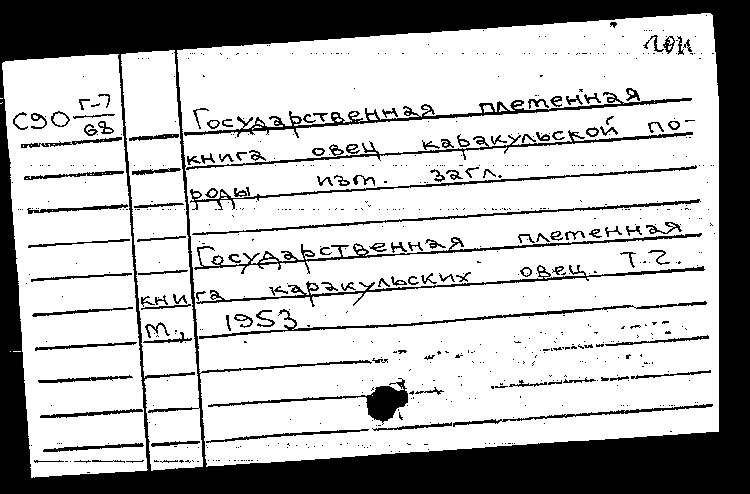 С90 Г-7
68
Государственная племенная
книга овец каракульской по-
роды, изм. загл.
Государственная племенная
книга каракульских овец. Т.2.
М., 1953.